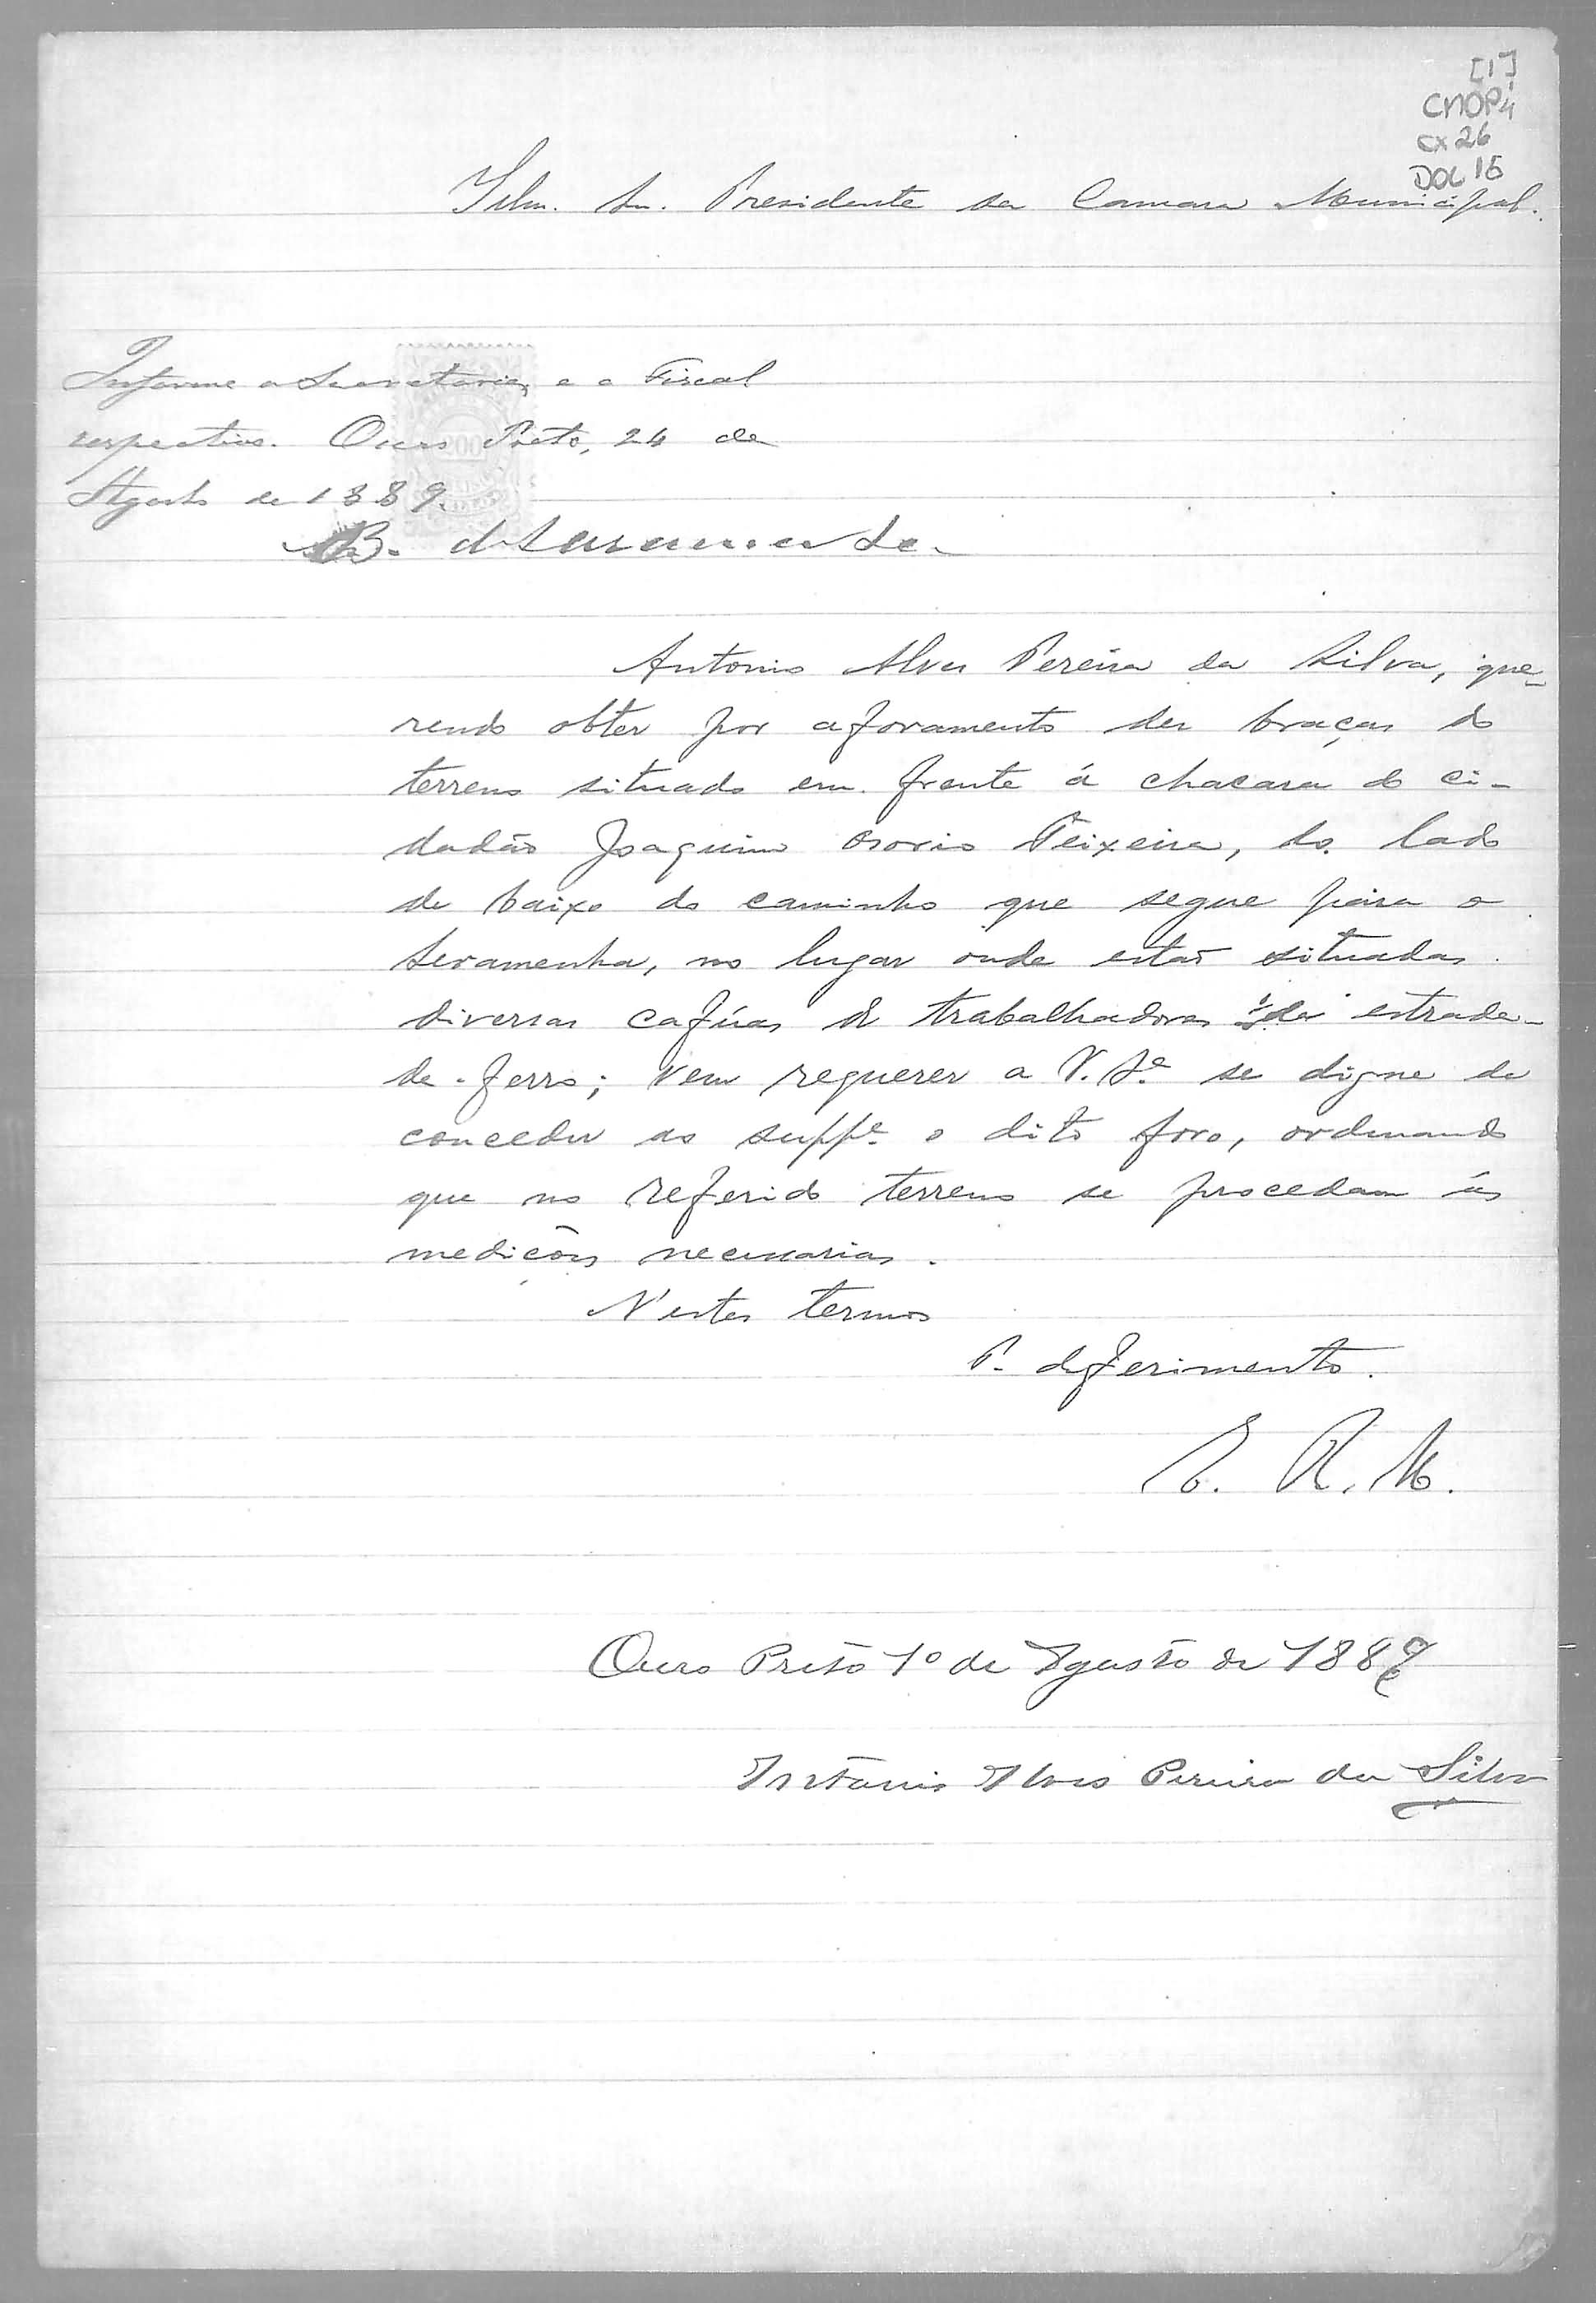 [1]
CMOP
cx 26
DOC 15
Illm. Sr. Presidente da Camara Municipal.
Informe a Secretaria, e o Fiscal
respectivo. Ouro Preto, 24 de
Agosto de 1889.
B. de Saramenha
200
Antonio Alves Pereira da Silva, que-
rendo obter por aforamento dez braças de
terreno situado em frente á chacara do ci-
dadão Joaquim Osorio Teixeira, do lado
de baixo do caminho que segue para o
Seramenha, no lugar onde estão situadas
diversas cafúas de trabalhadores da estrada-
de-ferro; vem requerer a V. Sª se digne de
conceder ao suppe o dito foro, ordenando
que no referido terreno se procedam ás
medicões necessarias.
N'estes termos
P. deferimento.
E. R. M.
Ouro Preto 1º de Agosto de 1889
Antonio Alves Pereira da Silva